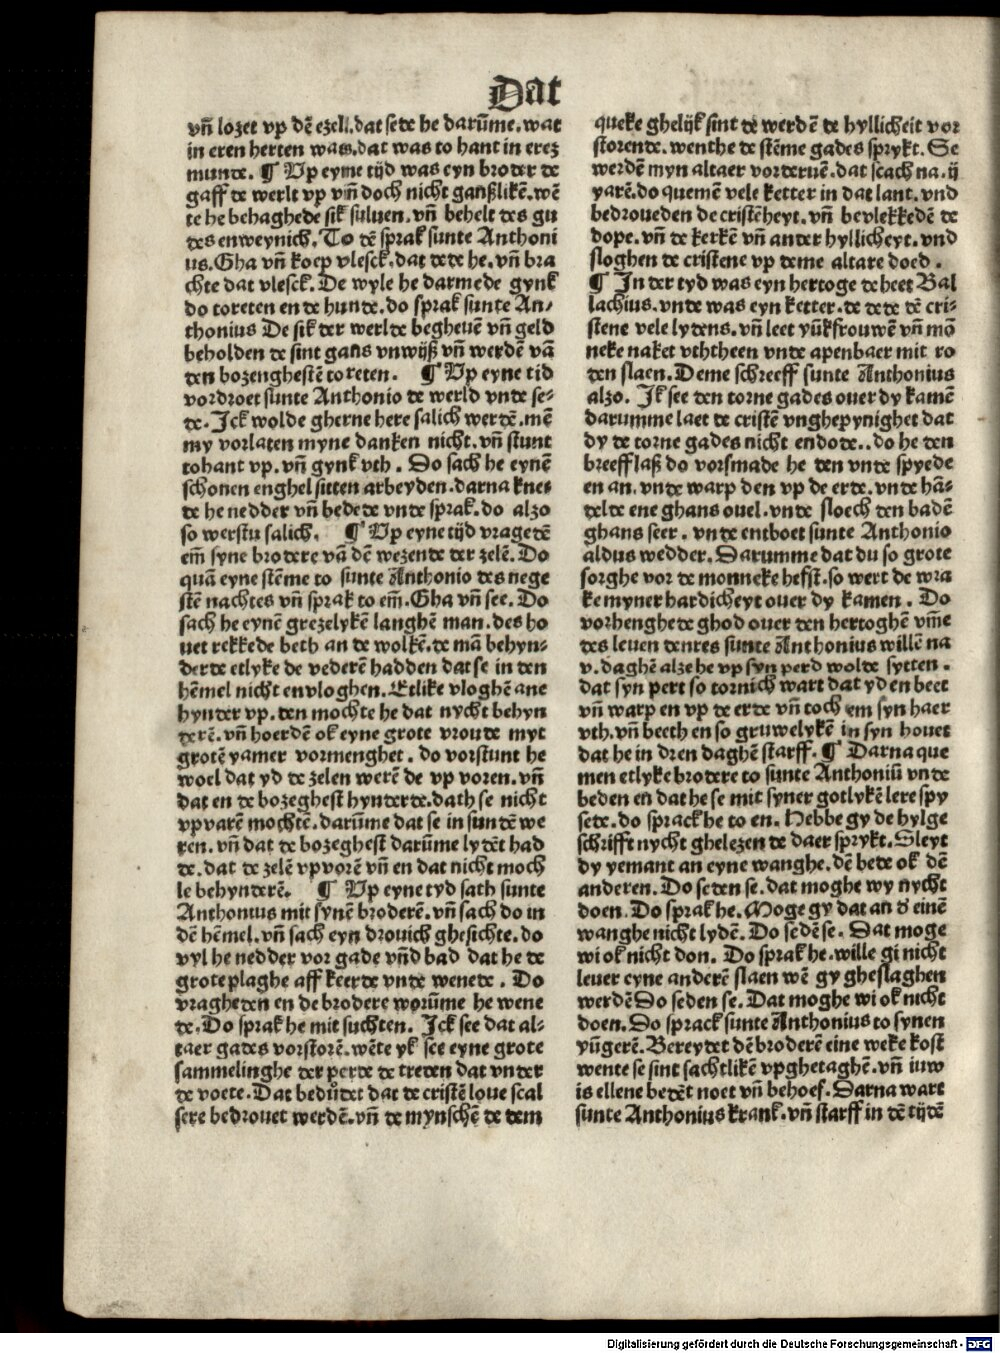 Dat
vñ lozet vp dē ezell.dat sede he darūme.wat
in eren herten was.dat was to hant in erez
munde. ¶ Up eyme tijd was eyn broder de
gaff de werlt vp vñ doch nicht ganßlikē.wē
te he behaghede sik suluen.vñ behelt des gu
des enweynich. To dē sprak sunte Anthoni
us.Gha vñ koep vlesck.dat dede he.vñ bra
chte dat vlesck.De wyle he darmede gynk
do toreten en de hunde.do sprak sunte An/
thonius De sik der werlde begheuē vñ geld
beholden de sint gans vnwijß vñ werdē vā
den bozenghestē toreten. ¶ Up eyne tid
vordroet sunte Anthonio de werld vnde se-
de. Jck wolde gherne here salich werdē.mē
my vorlaten myne danken nicht.vñ stunt
tohant vp.vñ gynk vth. Do sach he eynē
schonen enghel sitten arbeyden.darna knei
de he nedder vñ bedede vnde sprak.do alzo
so werstu salich. ¶ Up eyne tijd vragedē
em̄ syne brodere vā dē wezende der zelē. Do
quā eyne stēme to sunte Anthonio des nege
stē nachtes vñ sprak to em̄.Gha vñ see. Do
sach he eynē grezelykē langhē man.des ho
uet rekkede beth an de wolkē.de mā behyn-
derde etlyke de vederē hadden dat se in den
hēmel nicht envloghen. Etlike vloghē ane
hynder vp.den mochte he dat nycht behyn
derē.vñ hoerdē ok eyne grote vroude myt
grotē yamer vormenghet. do vorstunt he
woel dat yd de zelen werē de vp voren.vñ
dat en de bozeghest hynderde.dath se nicht
vpvarē mochtē.darūme dat se in sundē we
ren.vñ dat de bozeghest darūme lydēt had
de.dat de zelē vpvorē vñ en dat nicht moch
le behynderē. ¶ Up eyne tyd sath sunte
Anthonius mit synē broderē.vñ sach do in
dē hēmel.vñ sach eyn drouich ghesichte.do
vyl he nedder vor gade vñd bad dat he de
grote plaghe aff keerde vnde wenede. Do
vragheden en de brodere worūme he wene
de.Do sprak he mit suchten. Jck see dat al-
taer gades vorstorē.wēte yk see eyne grote
sammelinghe der perde de treden dat vnder
de voete.Dat bedůdet dat de cristē loue scal
sere bedrouet werdē.vñ de mynschē de dem
queke ghelijk sint de werdē de hyllicheit vor
storende.wenthe de stēme gades sprykt. Se
werdē myn altaer vorderuē.dat scach na.ij
yarē.do quemē vele ketter in dat lant.vnd
bedroueden de cristēheyt.vñ bevlekkedē de
dope.vñ de kerkē vñ ander hyllicheyt.vnd
sloghen de cristene vp deme altare doed.
¶ In der tyd was eyn hertoge deheet Bal
lachius.vnde was eyn ketter.de dede dē cri-
stene vele lydens.vñ leet yūkfrouwē vñ mō
neke naket vththeen vnde apenbaer mit ro
den slaen.Deme schreeff sunte Anthonius
alzo. Jk see den torne gades ouer dy kamē
darumme laet de cristē vnghepynighet dat
dy de torne gades nicht endode..do he den
breefflaß do vorsmade he den vnde spyede
en an.vnde warp den vp de erde.vnde hā-
delde ene ghans ouel.vnde sloech den badē
ghans seer. vnde entboet sunte Anthonio
aldus wedder. Darumme dat du so grote
sorghe vor de monneke hefst.so wert de wra
ke myner hardicheyt ouer dy kamen. Do
vorhenghede ghod ouer den hertoghē vm̄e
des leuen denres sunte Anthonius willē na
v.daghē alze he vp syn perd wolde sytten.
dat syn pert so tornich wart dat yd en beet
vñ warp en vp de erde vñ toch em syn haer
vth.vñ beeth en so gruwelykē in syn houet
dat he in dren daghē starff. ¶ Darna que
men etlyke brodere to sunte Anthoniū vnde
beden en dat he se mit syner gotlykē lere spy
sede.do sprack he to en. Hebbe gy de hylge
schrifft nycht ghelezen de daer sprykt. Sleyt
dy yemant an eyne wanghe.dē bede ok dē
anderen.Do seden se.dat moghe wy nycht
doen.Do sprak he.Moge gy dat an d' einē
wanghe nicht lydē. Do sedē se. Dat moge
wi ok nicht don. Do sprak he.wille gi nicht
leuer eyne anderē slaen wē gy gheslaghen
werdē Do seden se. Dat moghe wi ok nicht
doen.Do sprack sunte Anthonius to synen
yūgerē.Bereydet dē broderē eine weke kost
wente se sint sachtlikē vpghetaghē.vñ iuw
is ellene bedēt noet vñ behoef.Darna wart
sunte Anthonius krank.vñ starff in dē tijdē
Digitalisierung gefördert durch die Deutsche Forschungsgemeinschaft - DFG